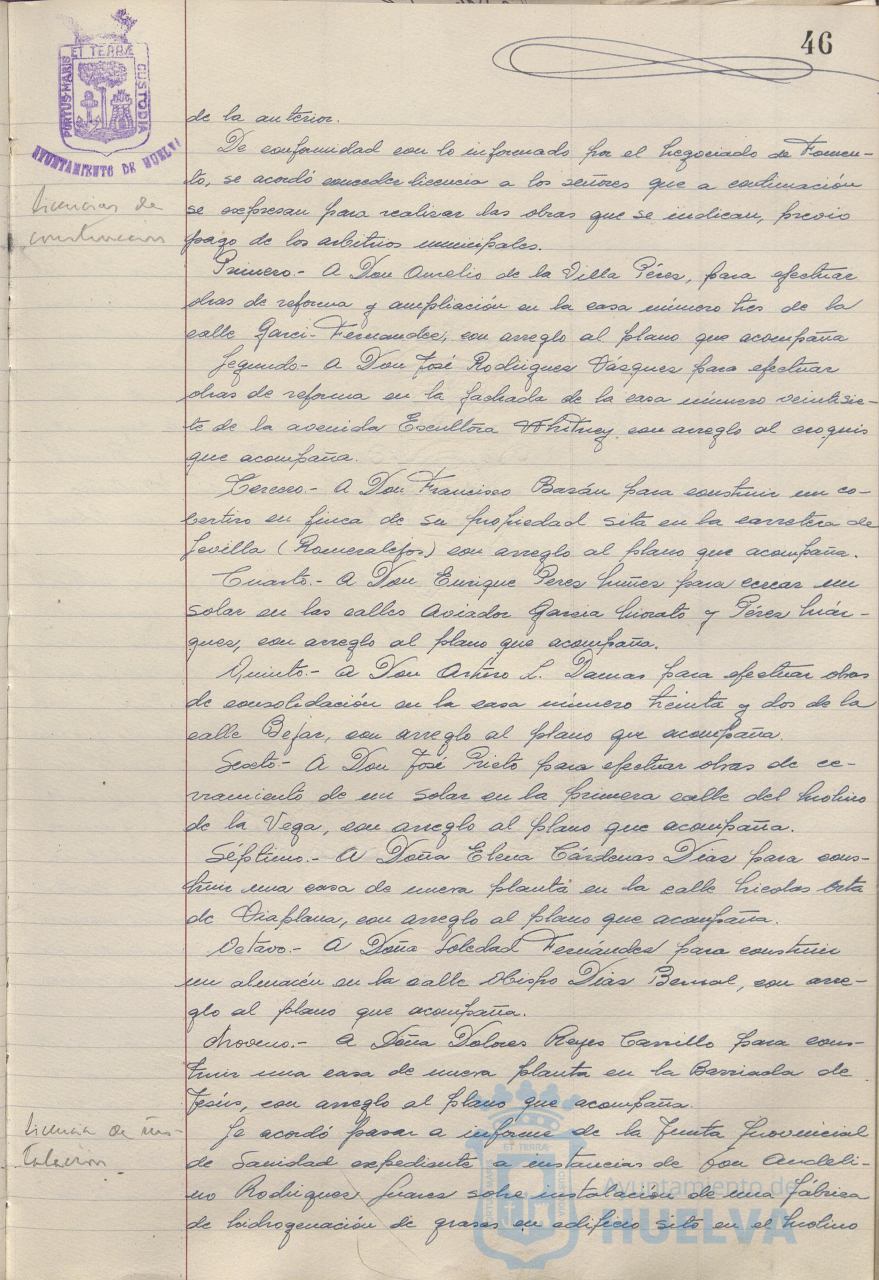 46
ET TERRÆ
PORTUS MARIS
CUSTODIA
AYUNTAMIENTO DE HUELVA
de la anterior.
De conformidad con lo informado por el Negociado de Fomen-
to, se acordó conceder licencia a los señores que a continuación
Licencias de
construccion
se expresan para realizar las obras que se indican, previo
pago de los arbitrios municipales.
Primero.- A Don Aurelio de la Villa Pérez, para efectuar
obras de reforma y ampliación en la casa número tres de la
calle Garci-Fernandez, con arreglo al plano que acompaña
Segundo.- A Don José Rodriguez Vásquez para efectuar
obras de reforma en la fachada de la casa número veintisie-
te de la avenida Escultora Whitney con arreglo al croquis
que acompaña.
Tercero.- A Don Francisco Bazán para construir un co-
bertizo en finca de su propiedad sita en la carretera de
Sevilla (Romeralejos) con arreglo al plano que acompaña.
Cuarto.- A Don Enrique Perez Núñez para cercar un
solar en las calles Aviador Garcia Morato y Pérez Már-
quez, con arreglo al plano que acompaña.
Quinto.- A Don Arturo L. Damas para efectuar obras
de consolidación en la casa número treinta y dos de la
calle Bejar, con arreglo al plano que acompaña.
Sexto.- A Don José Prieto para efectuar obras de ce-
rramiento de un solar en la primera calle del Molino
de la Vega, con arreglo al plano que acompaña.
Séptimo.- A Doña Elena Cárdenas Dias para cons-
truir una casa de nueva planta en la calle Nicolas Orta
de Viaplana, con arreglo al plano que acompaña.
Octavo.- A Doña Soledad Fernández para construir
un almacén en la calle Obispo Dias Bernal, con arre-
glo al plano que acompaña.
Noveno.- A Doña Dolores Reyes Carrillo para cons-
truir una casa de nueva planta en la Barriada de
Jesús, con arreglo al plano que acompaña.
Licencia de ins-
talacion
Se acordó pasar a informe de la Junta Provincial
de Sanidad expediente a instancias de Don Andeli-
no Rodriguez Suarez sobre instalación de una fábrica
de hidrogenación de grasas en edificio sito en el Molino
Ayuntamiento de
HUELVA